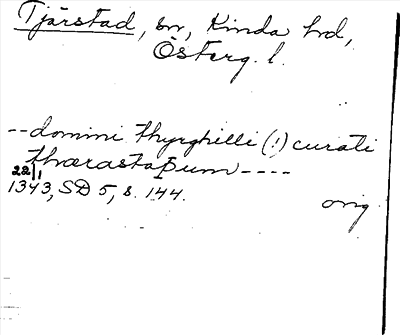 Tjärstad, sn, Kinda hd,
Österg. l.
--domini thyrghilli (!) curati
thærastaþum ----
22/1
1343, SD 5, s. 144.
orig